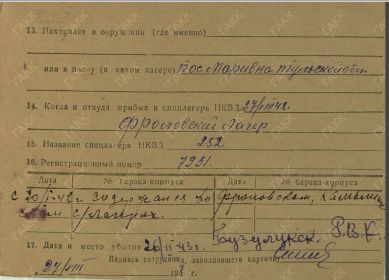 13. Находился в окружении (где именно)
или в плену (в каком лагере) пос Маривка Тульской обл.
14. Когда и откуда прибыл в спецлагерь НКВД 27/III 42
Фроловский Лагер
15. Название спецлагеря НКВД 252
16. Регистрационный номер 7951.
Дата № барака-корпуса Дата № барака-корпуса
с 20/I-42 г содержался во Фроловском,
с/лагерях.
17. Дата и место убытия 26/II 43 г. Бузулукск. Р.В.К.
Подпись сотрудника, заполнявшего карточку
27/III 194 г.
ГАКК